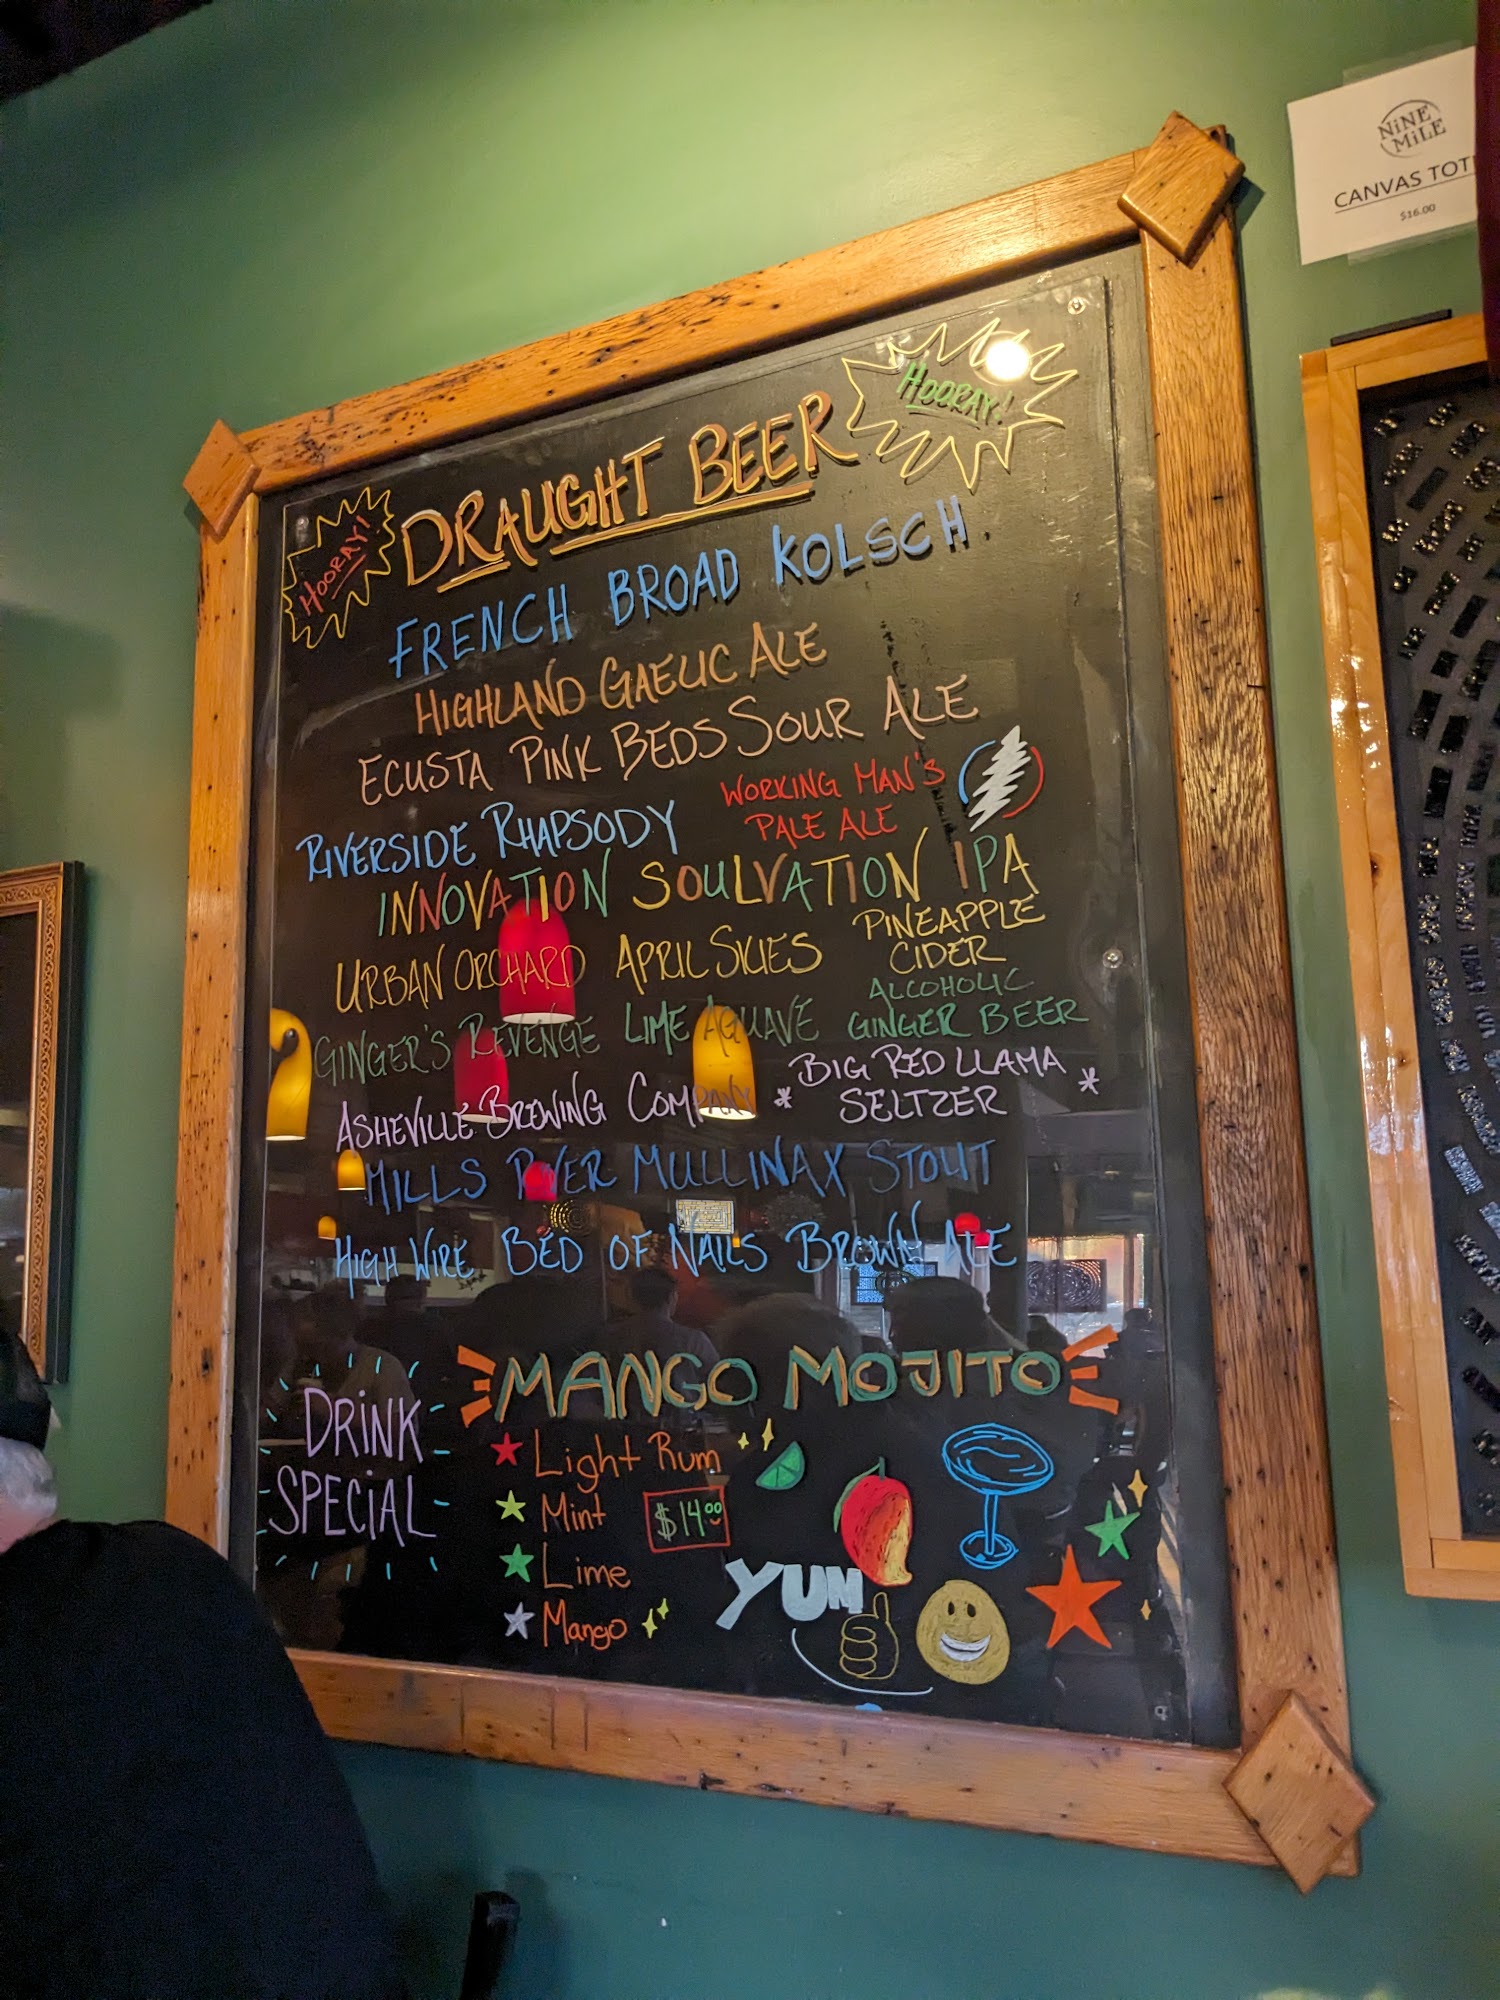 NiNE
MiLE
CANVAS
$16.00
HOORAY!
HOORAY!
DRAUGHT BEER
FRENCH BROAD KOLSCH
HIGHLAND GAELIC ALE
ECUSTA PINK BEDS SOUR ALE
RIVERSIDE RHAPSODY
WORKING MAN'S
PALE ALE
INNOVATION SOULVATION IPA
URBAN ORCHARD APRIL SKIES
PINEAPPLE
CIDER
GINGER'S REVENGE LIME AGUAVE
ALCOHOLIC
GINGER BEER
ASHEVILLE BREWING COMPANY *
BIG RED LLAMA
SELTZER *
MILLS RIVER MULLINAX STOUT
HIGH WIRE BED OF NAILS BROWN ALE
DRiNK
SPECiAL
MANGO MOJITO
Light Rum
Mint
$14.00
Lime
Mango
YUM